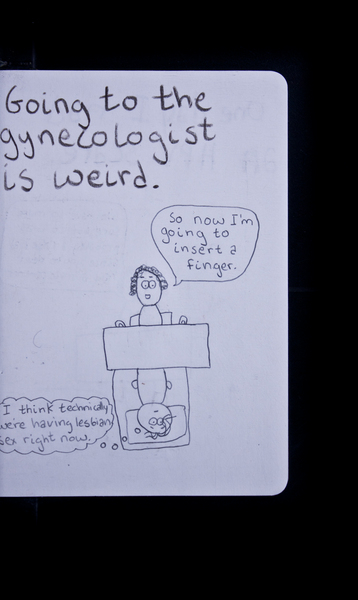 Going to the
gynecologist
is weird.
So now I'm
going to
insert a
finger.
I think technically
we're having lesbian
sex right now.